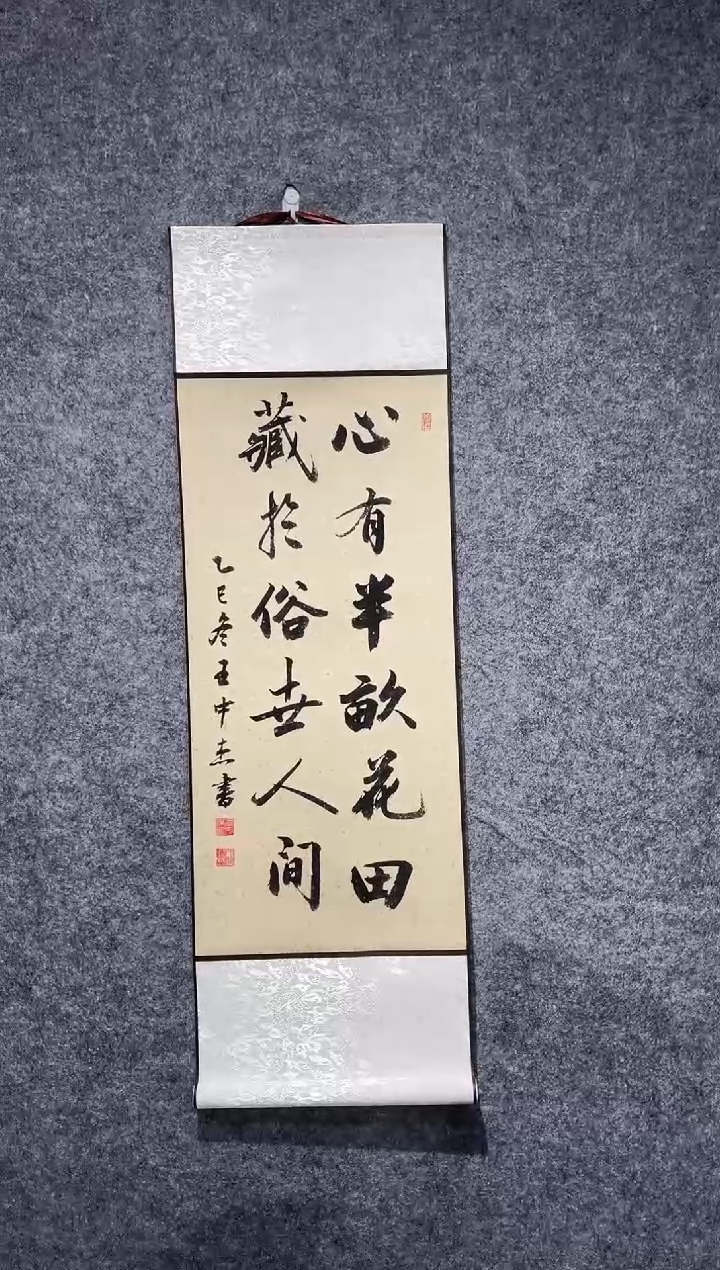 心有半畝花田
藏於俗世人间
乙巳冬王中杰書